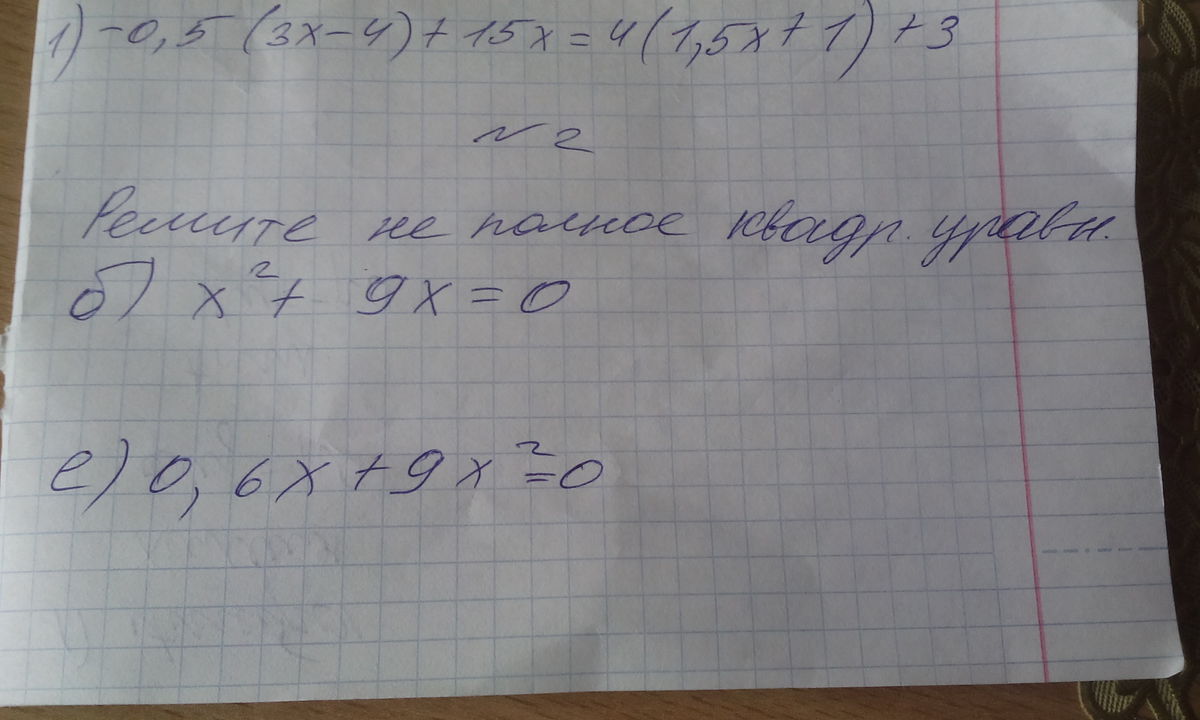 1) -0,5 (3x-4)+15x=4(1,5x+1)+3
№2
Решите не полное квадр. уравн.
б) x²+ 9x=0
е) 0,6x+9x²=0